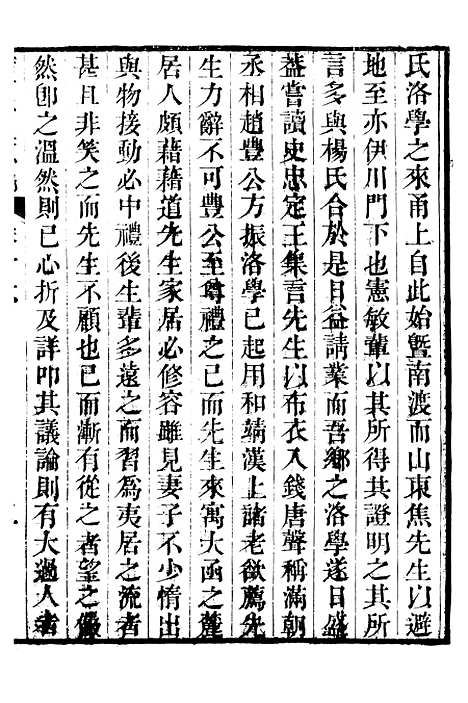 氏洛學之來甬上自此始曁南渡而山東焦先生以避
地至亦伊川門下也憲敏輩以其所得共證明之其所
言多與楊氏合於是日益請業而吾鄉之洛學遂日盛
葢嘗讀史忠定王集言先生以布衣入錢唐聲稱滿朝
丞相趙豐公方振洛學已起用和靖漢上諸老欲薦先
生力辭不可豐公至尊禮之已而先生來寓大函之麓
居人頗藉藉道先生家居必修容雖見妻子不少惰出
與物接動必中禮後生輩多遠之而習為夷居之流者
甚且非笑之而先生不顧也已而漸有從之者望之儼
然卽之溫然則已心折及詳叩其議論則有大過人者